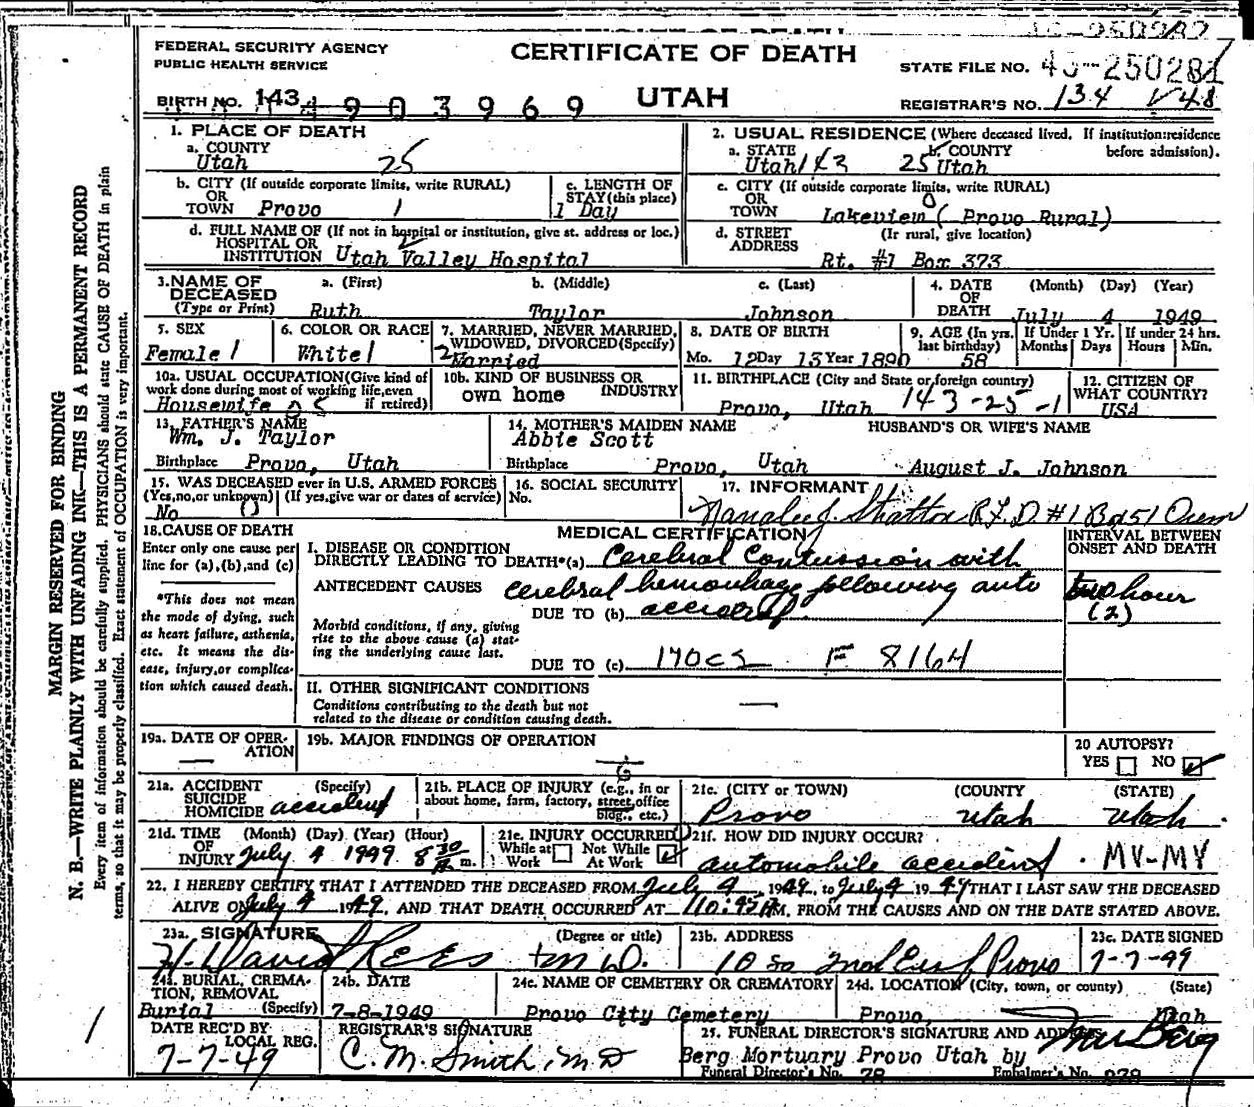 CERTIFICATE OF DEATH
UTAH
FEDERAL SECURITY AGENCY
PUBLIC HEALTH SERVICE
STATE FILE NO. 45-250281
BIRTH NO. 143 4903969
REGISTRAR'S NO. 134 V48
MARGIN RESERVED FOR BINDING
N. B.—WRITE PLAINLY WITH UNFADING INK—THIS IS A PERMANENT RECORD
Every item of information should be carefully supplied. PHYSICIANS should state CAUSE OF DEATH in plain
terms, so that it may be properly classified. Exact statement of OCCUPATION is very important.
1. PLACE OF DEATH
a. COUNTY
Utah 25
b. CITY (If outside corporate limits, write RURAL)
OR
TOWN Provo 1
c. LENGTH OF
STAY (this place)
1 Day
d. FULL NAME OF (If not in hospital or institution, give st. address or loc.)
HOSPITAL OR
INSTITUTION Utah Valley Hospital
2. USUAL RESIDENCE (Where deceased lived. If institution:residence
before admission).
a. STATE
Utah 143
b. COUNTY
25 Utah
c. CITY (If outside corporate limits, write RURAL)
OR
TOWN Lakeview ( Provo Rural)
d. STREET (Ir rural, give location)
ADDRESS
Rt. #1 Box 373
3. NAME OF
DECEASED
(Type or Print)
a. (First)
Ruth
b. (Middle)
Taylor
c. (Last)
Johnson
4. DATE
OF
DEATH
(Month) (Day) (Year)
July 4 1949
5. SEX
Female 1
6. COLOR OR RACE
White 1
7. MARRIED, NEVER MARRIED,
WIDOWED, DIVORCED(Specify)
2 Married
8. DATE OF BIRTH
Mo. 12 Day 13 Year 1890
9. AGE (In yrs.
last birthday)
58
If Under 1 Yr.
Months Days
If under 24 hrs.
Hours Min.
10a. USUAL OCCUPATION(Give kind of
work done during most of working life,even
if retired)
Housewife
10b. KIND OF BUSINESS OR
INDUSTRY
own home
11. BIRTHPLACE (City and State or foreign country)
Provo, Utah 143-25-1
12. CITIZEN OF
WHAT COUNTRY?
USA
13. FATHER'S NAME
Wm. J. Taylor
Birthplace Provo, Utah
14. MOTHER'S MAIDEN NAME
Abbie Scott
Birthplace Provo, Utah
HUSBAND'S OR WIFE'S NAME
August J. Johnson
15. WAS DECEASED ever in U.S. ARMED FORCES
(Yes,no,or unknown) (If yes,give war or dates of service)
No
16. SOCIAL SECURITY
No.
17. INFORMANT
J. Stratton R.F.D #1 B 51 Orem
18. CAUSE OF DEATH
Enter only one cause per
line for (a),(b),and (c)
*This does not mean
the mode of dying, such
as heart failure, asthenia,
etc. It means the dis-
ease, injury, or complica-
tion which caused death.
MEDICAL CERTIFICATION
INTERVAL BETWEEN
ONSET AND DEATH
I. DISEASE OR CONDITION
DIRECTLY LEADING TO DEATH*(a) Cerebral Contussion with
ANTECEDENT CAUSES cerebral hemorrhage following auto
DUE TO (b) accident
two hour
(2)
Morbid conditions, if any, giving
rise to the above cause (a) stat-
ing the underlying cause last.
DUE TO (c) F 8164
II. OTHER SIGNIFICANT CONDITIONS
Conditions contributing to the death but not
related to the disease or condition causing death.
19a. DATE OF OPER-
ATION
19b. MAJOR FINDINGS OF OPERATION
20 AUTOPSY?
YES NO
21a. ACCIDENT (Specify)
SUICIDE
HOMICIDE accident
21b. PLACE OF INJURY (e.g., in or
about home, farm, factory, street, office
bldg., etc.)
21c. (CITY or TOWN) (COUNTY (STATE)
Provo Utah Utah
21d. TIME (Month) (Day) (Year) (Hour)
OF
INJURY July 4 1949 8 30 m.
21e. INJURY OCCURRED
While at Not While
Work At Work
21f. HOW DID INJURY OCCUR?
automobile accident MV-MV
22. I HEREBY CERTIFY THAT I ATTENDED THE DECEASED FROM July 4, 1949, to July 4 1949 THAT I LAST SAW THE DECEASED
ALIVE ON July 4 1949, AND THAT DEATH OCCURRED AT 10:45 M, FROM THE CAUSES AND ON THE DATE STATED ABOVE.
23a. SIGNATURE (Degree or title)
H. David Rees M.D.
23b. ADDRESS
10 So 2nd East Provo
23c. DATE SIGNED
7-7-49
24a. BURIAL, CREMA-
TION, REMOVAL
(Specify)
Burial
24b. DATE
7-8-1949
24c. NAME OF CEMETERY OR CREMATORY
Provo City Cemetery
24d. LOCATION (City, town, or county) (State)
Provo, Utah
DATE REC'D BY
LOCAL REG.
7-7-49
REGISTRAR'S SIGNATURE
C. M. Smith, M D
25. FUNERAL DIRECTOR'S SIGNATURE AND ADDRESS
Berg Mortuary Provo Utah by Berg
Funeral Director's No. 78 Embalmer's No.